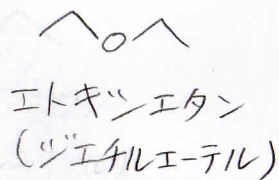 O
エトキシエタン
(ジエチルエーテル)